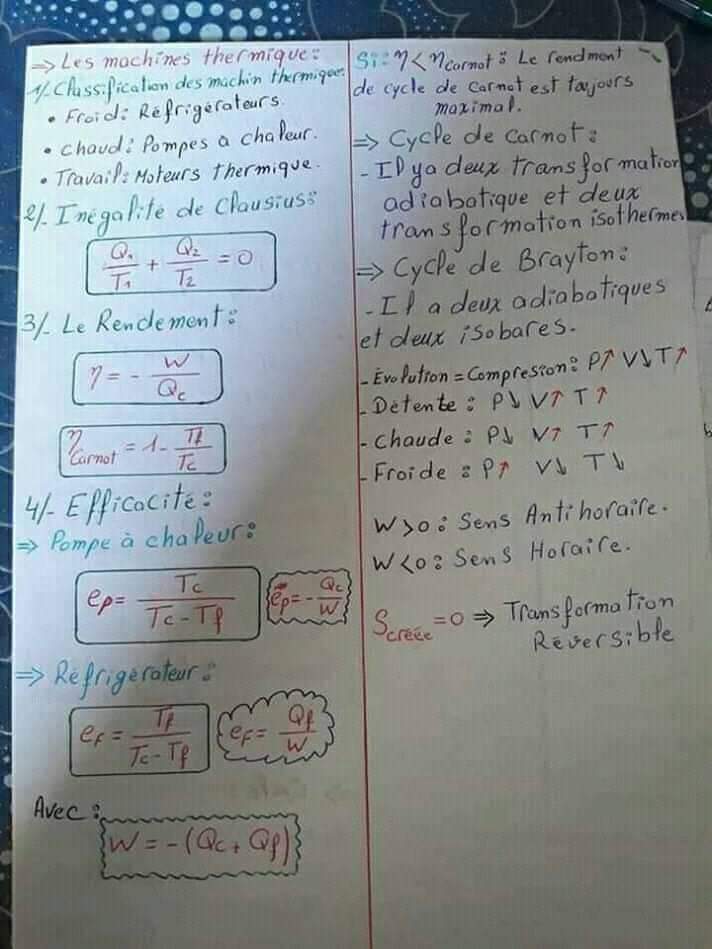 ⇒ Les machines thermique:
1/- Classification des machin thermique:
• Froid: Réfrigérateurs.
• chaud: Pompes à chaleur.
• Travail: Moteurs thermique.
2/- Inégalité de Clausius:
Q₁/T₁ + Q₂/T₂ = 0
3/- Le Rendement:
η = - W/Qc
ηCarnot = 1 - Tf/Tc
4/- Efficacité:
⇒ Pompe à chaleur:
ep = Tc/(Tc - Tf) ep = - Qc/W
⇒ Réfrigérateur:
ef = Tf/(Tc - Tf) ef = Qf/W
Avec:
W = -(Qc + Qf)
Si: η < ηcarnot: Le rendment
de cycle de Carnot est toujours
maximal.
⇒ Cycle de Carnot:
- Il ya deux transformation
adiabatique et deux
transformation isothermes
⇒ Cycle de Brayton:
- Il a deux adiabatiques
et deux isobares.
- Évolution = Compresion: P↑ V↓ T↑
- Détente: P↓ V↑ T↑
- Chaude: P↓ V↑ T↑
- Froide: P↑ V↓ T↓
W>0: Sens Antihoraire.
W<0: Sens Horaire.
Scréée = 0 ⇒ Transformation
Réversible